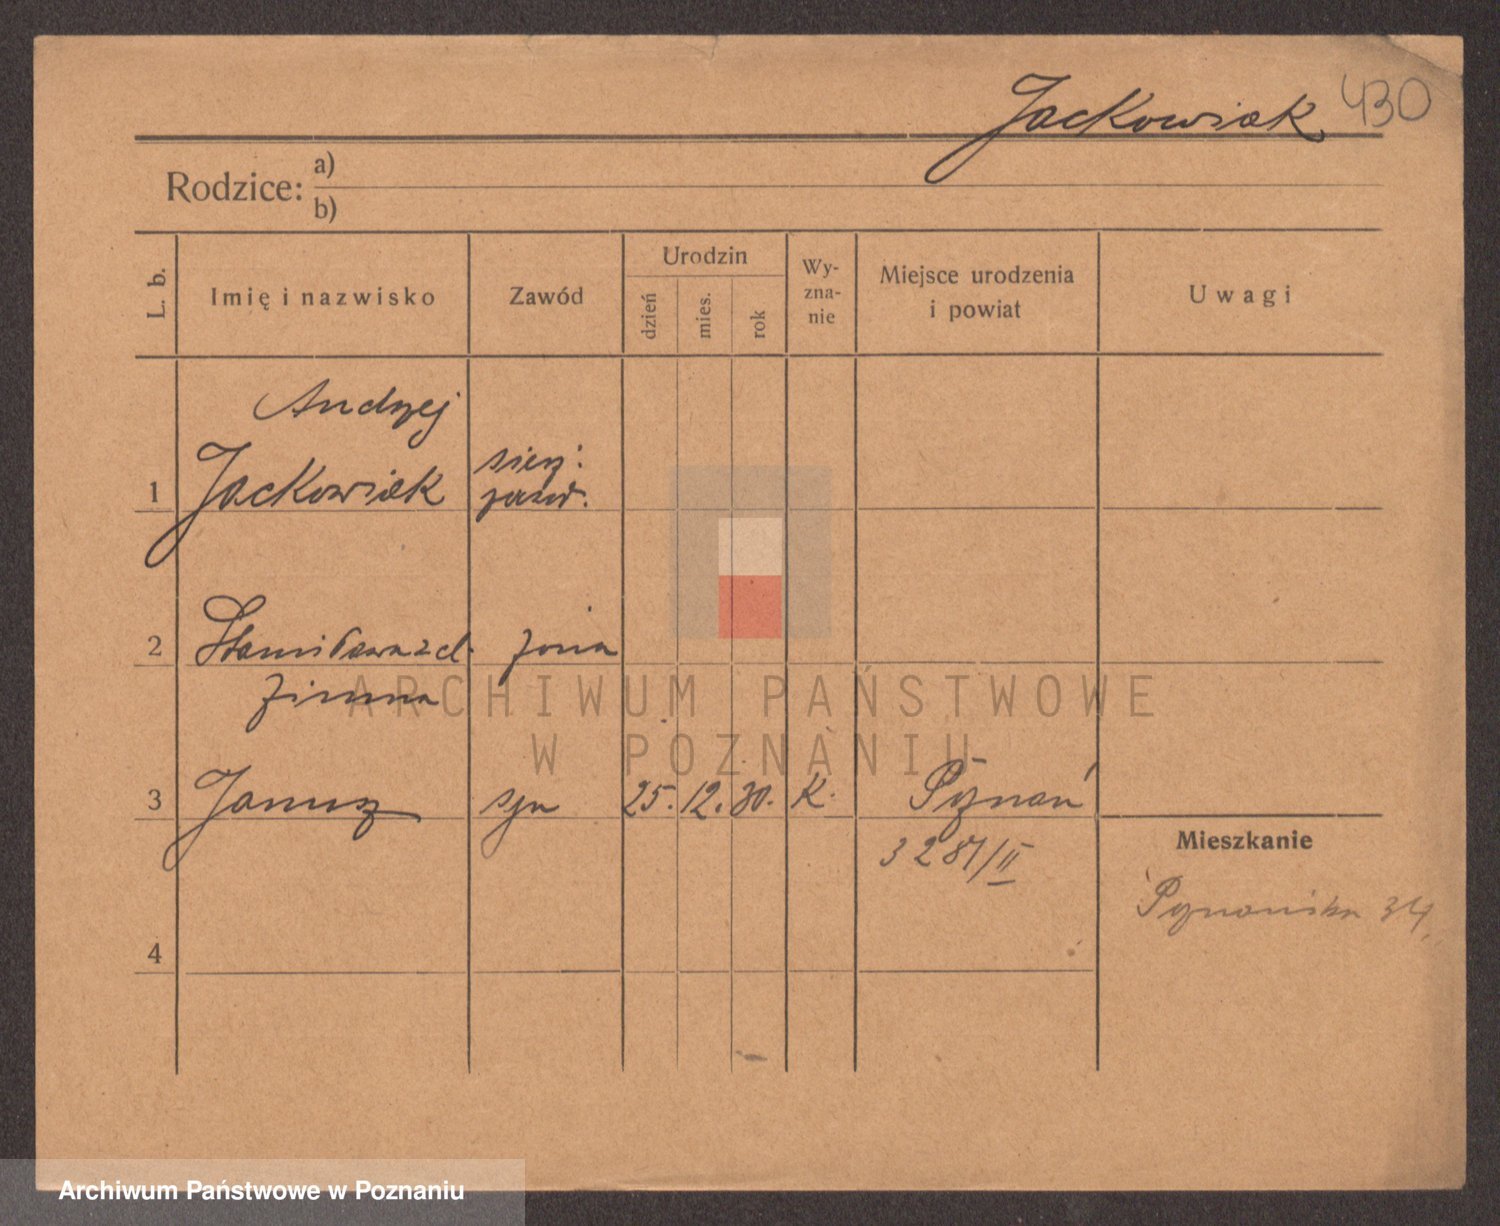 Jackowiak 430
Rodzice: a)
b)
L. b.
Imię i nazwisko
Zawód
Urodzin
dzień
mies.
rok
Wy-
zna-
nie
Miejsce urodzenia
i powiat
Uwagi
Andrzej
1 Jackowiak
sierż.
zawod.
2 Stanisława zd. żona
Zimna
ARCHIWUM PAŃSTWOWE
W POZNANIU
3 Janusz syn 25. 12. 30. K. Poznań
3281/II
Mieszkanie
Poznańska 34
4
Archiwum Państwowe w Poznaniu